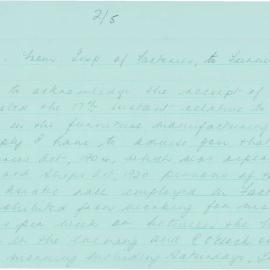 2/5
. From Insp of Factories, to
to acknowledge the receipt of
the 17th instant relative to
in the furniture manufacturing
I have to advise you that
Act, 1904, which was
and Shops Act, 1920 persons of
Asiatic race employed in
prohibited from working for
per week or between the
in the evening and 8 O'clock
morning including Saturdays.